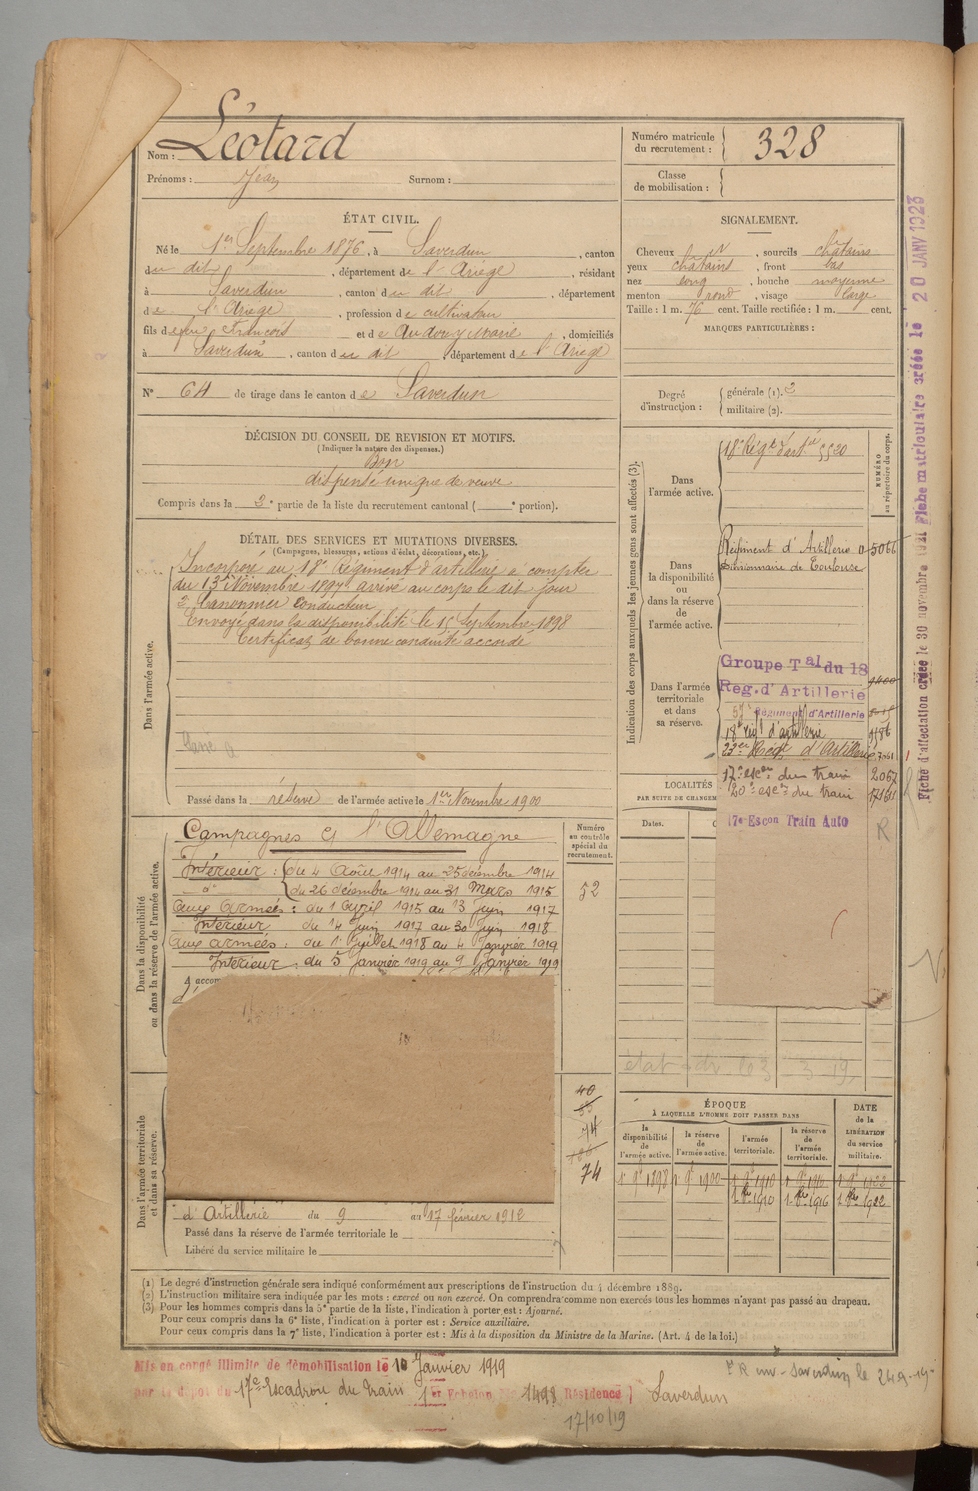 Nom : Léotard
Prénoms : Jean Surnom :
Numéro matricule du recrutement : 328
Classe de mobilisation :
ÉTAT CIVIL.
Né le 1er Septembre 1876, à Saverdun, canton
du dit, département de l'Ariège, résidant
à Saverdun, canton du dit, département
de l'Ariège, profession de cultivateur
fils de feu François et de Audouy Marie, domiciliés
à Saverdun, canton du dit, département de l'Ariège
N° 64 de tirage dans le canton de Saverdun
SIGNALEMENT.
Cheveux, sourcils châtains
yeux châtains, front bas
nez long, bouche moyenne
menton rond, visage large
Taille : 1 m. 76 cent. Taille rectifiée : 1 m. cent.
MARQUES PARTICULIÈRES :
Degré d'instruction : générale (1). 2
militaire (2).
DÉCISION DU CONSEIL DE REVISION ET MOTIFS.
(Indiquer la nature des dispenses.)
Bon
dispensé unique de veuve
Compris dans la 2e partie de la liste du recrutement cantonal ( e portion).
DÉTAIL DES SERVICES ET MUTATIONS DIVERSES.
(Campagnes, blessures, actions d'éclat, décorations, etc.)
Dans l'armée active.
Incorporé au 18e Régiment d'artillerie à compter
du 13 Novembre 1897 arrivé au corps le dit jour
2e Canonnier Conducteur
Envoyé dans la disponibilité le 15 Septembre 1898
Certificat de bonne conduite accordé
Passé dans la réserve de l'armée active le 1er Novembre 1900
Indication des corps auxquels les jeunes gens sont affectés (3).
NUMÉRO au répertoire du corps.
Dans l'armée active.
18e Régt d'artie 5520
Dans la disponibilité ou dans la réserve de l'armée active.
Régiment d'Artillerie 05066
Divisionnaire de Toulouse
Dans l'armée territoriale et dans sa réserve.
Groupe Tal du 18
Reg. d'Artillerie
57e Régiment d'Artillerie
18e régt d'artillerie
23e Régt d'Artillerie
17e escon du train 2067
20e escon du train
17e Escon Train Auto
R
LOCALITÉS
PAR SUITE DE CHANGEM
Dates.
Dans la disponibilité ou dans la réserve de l'armée active.
Numéro au contrôle spécial du recrutement.
52
Campagnes c/ l'Allemagne
Intérieur : du 4 Août 1914 au 25 décembre 1914
d° du 26 décembre 1914 au 31 Mars 1915
aux armées : du 1 Avril 1915 au 13 Juin 1917
Intérieur du 14 Juin 1917 au 30 Juin 1918
aux armées : du 1er Juillet 1918 au 4 Janvier 1919
Intérieur : du 5 Janvier 1919 au 9 Janvier 1919
A accom
Dans l'armée territoriale et dans sa réserve.
40
74
74
d'Artillerie du 9 au 17 février 1912
Passé dans la réserve de l'armée territoriale le
Libéré du service militaire le
état - dr. le 3 - 3 - 19
ÉPOQUE
À LAQUELLE L'HOMME DOIT PASSER DANS
la disponibilité de l'armée active.
la réserve de l'armée active.
l'armée territoriale.
la réserve de l'armée territoriale.
DATE de la LIBÉRATION du service militaire.
1r 9e 1898 1r 9e 1900 1r 9e 1910 1r 9e 1916 1r 9e 1922
1r 8re 1910 1r 8re 1916 1r 8re 1922
(1) Le degré d'instruction générale sera indiqué conformément aux prescriptions de l'instruction du 4 décembre 1889.
(2) L'instruction militaire sera indiquée par les mots : exercé ou non exercé. On comprendra comme non exercés tous les hommes n'ayant pas passé au drapeau.
(3) Pour les hommes compris dans la 5e partie de la liste, l'indication à porter est : Ajourné.
Pour ceux compris dans la 6e liste, l'indication à porter est : Service auxiliaire.
Pour ceux compris dans la 7e liste, l'indication à porter est : Mis à la disposition du Ministre de la Marine. (Art. 4 de la loi.)
Mis en congé illimité de démobilisation le 10 Janvier 1919
par le dépôt du 17e Escadron du Train 1er Echelon N° 1498 Résidence Saverdun
17/10/19
Saverdun le 24-9-19
Fiche d'affectation créée le 30 novembre 1921 Fiche matriculaire créée le 20 JANV 1923